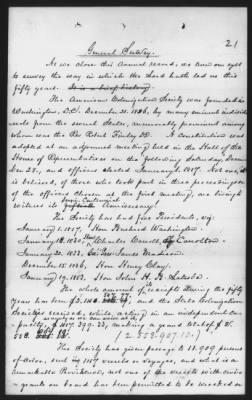 21
General Survey.
As we close this Annual record, we turn our eyes
to survey the way in which the Lord hath led us this
fifty years.
The American Colonization Society was founded in
Washington, D.C. December 21. 1816, by many eminent individ-
uals from the several States, among prominent
whom was the Rev. Robert Finley DD. A Constitution was
adopted at an adjourned meeting held in the Hall of the
House of Representatives on the following Saturday, Decem-
ber 28, and officers elected January 1. 1817. Not one, it
is believed, of those who took part in these proceedings or
of the officers chosen at the first meeting, are
witness its Anniversary.
The Society has had five Presidents, viz:
January 1. 1817, Hon. Bushrod Washington.
January 18. 1830, Hon Charles Carroll of Carrolton.
January 20. 1833, Ex Pres James Madison.
December 15. 1836, Hon. Henry Clay.
January 19. 1853, Hon. John H. B. Latrobe.
The whole amount of receipts during the fifty
years has been and the State Colonization
Societies received, while acting in an independent ca-
pacity, making a grand total of $2.
558.
(2 558 907.10)
The Society has given passage to
of color, and in 147 vessels or voyages, and what is a
remarkable Providence, not one of the vessels with emi-
grants on board has been permitted to be wrecked or